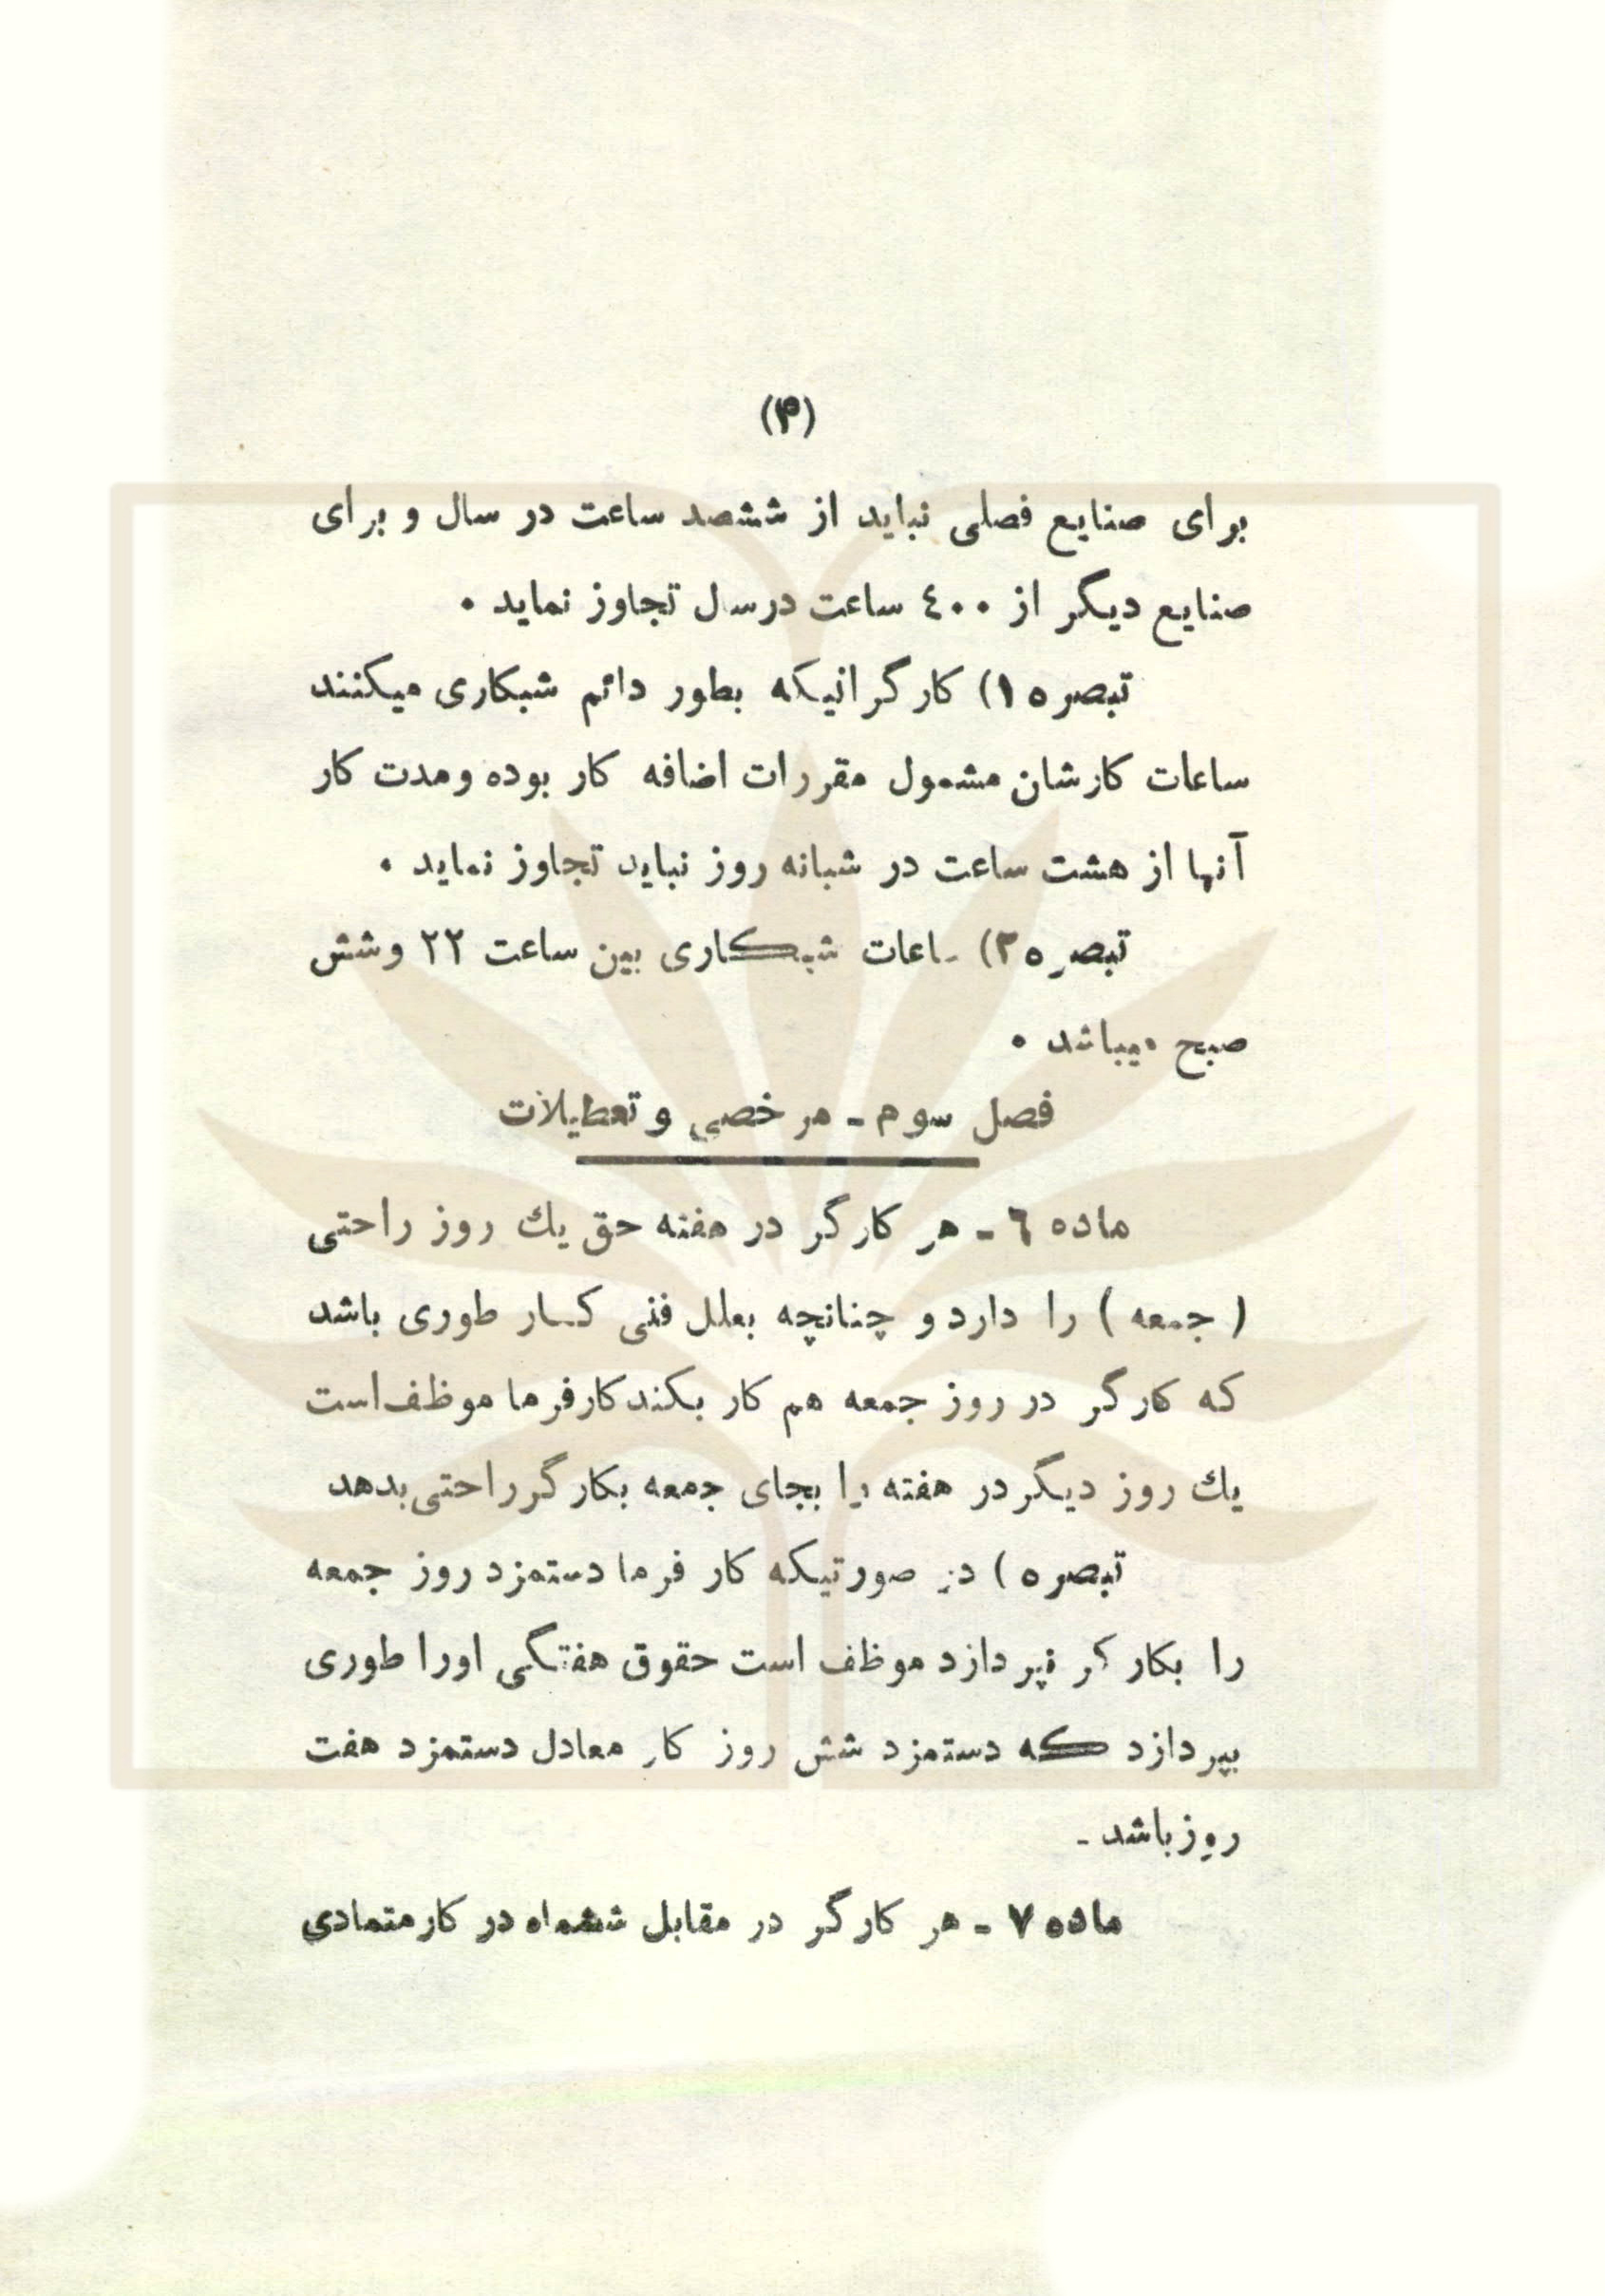 (۴)
برای صنایع فصلی نباید از ششصد ساعت در سال و برای
صنایع دیگر از ٤٠٠ ساعت درسال تجاوز نماید .
تبصره ۱) کارگرانیکه بطور دائم شبکاری میکنند
ساعات کارشان مشمول مقررات اضافه کار بوده ومدت کار
آنها از هشت ساعت در شبانه روز نباید تجاوز نماید .
تبصره ۲) ساعات شبکاری بین ساعت ۲۲ وشش
صبح میباشد .
فصل سوم ـ مرخصی و تعطیلات
ماده ٦ ـ هر کارگر در هفته حق یك روز راحتی
( جمعه ) را دارد و چنانچه بعلل فنی کار طوری باشد
که کارگر در روز جمعه هم کار بکند کارفرما موظف است
یك روز دیگر در هفته را بجای جمعه بکارگر راحتی بدهد
تبصره ) در صورتیکه کار فرما دستمزد روز جمعه
را بکارگر نپردازد موظف است حقوق هفتگی اورا طوری
بپردازد که دستمزد شش روز کار معادل دستمزد هفت
روز باشد ـ
ماده ۷ ـ هر کارگر در مقابل ششماه در کار متمادی